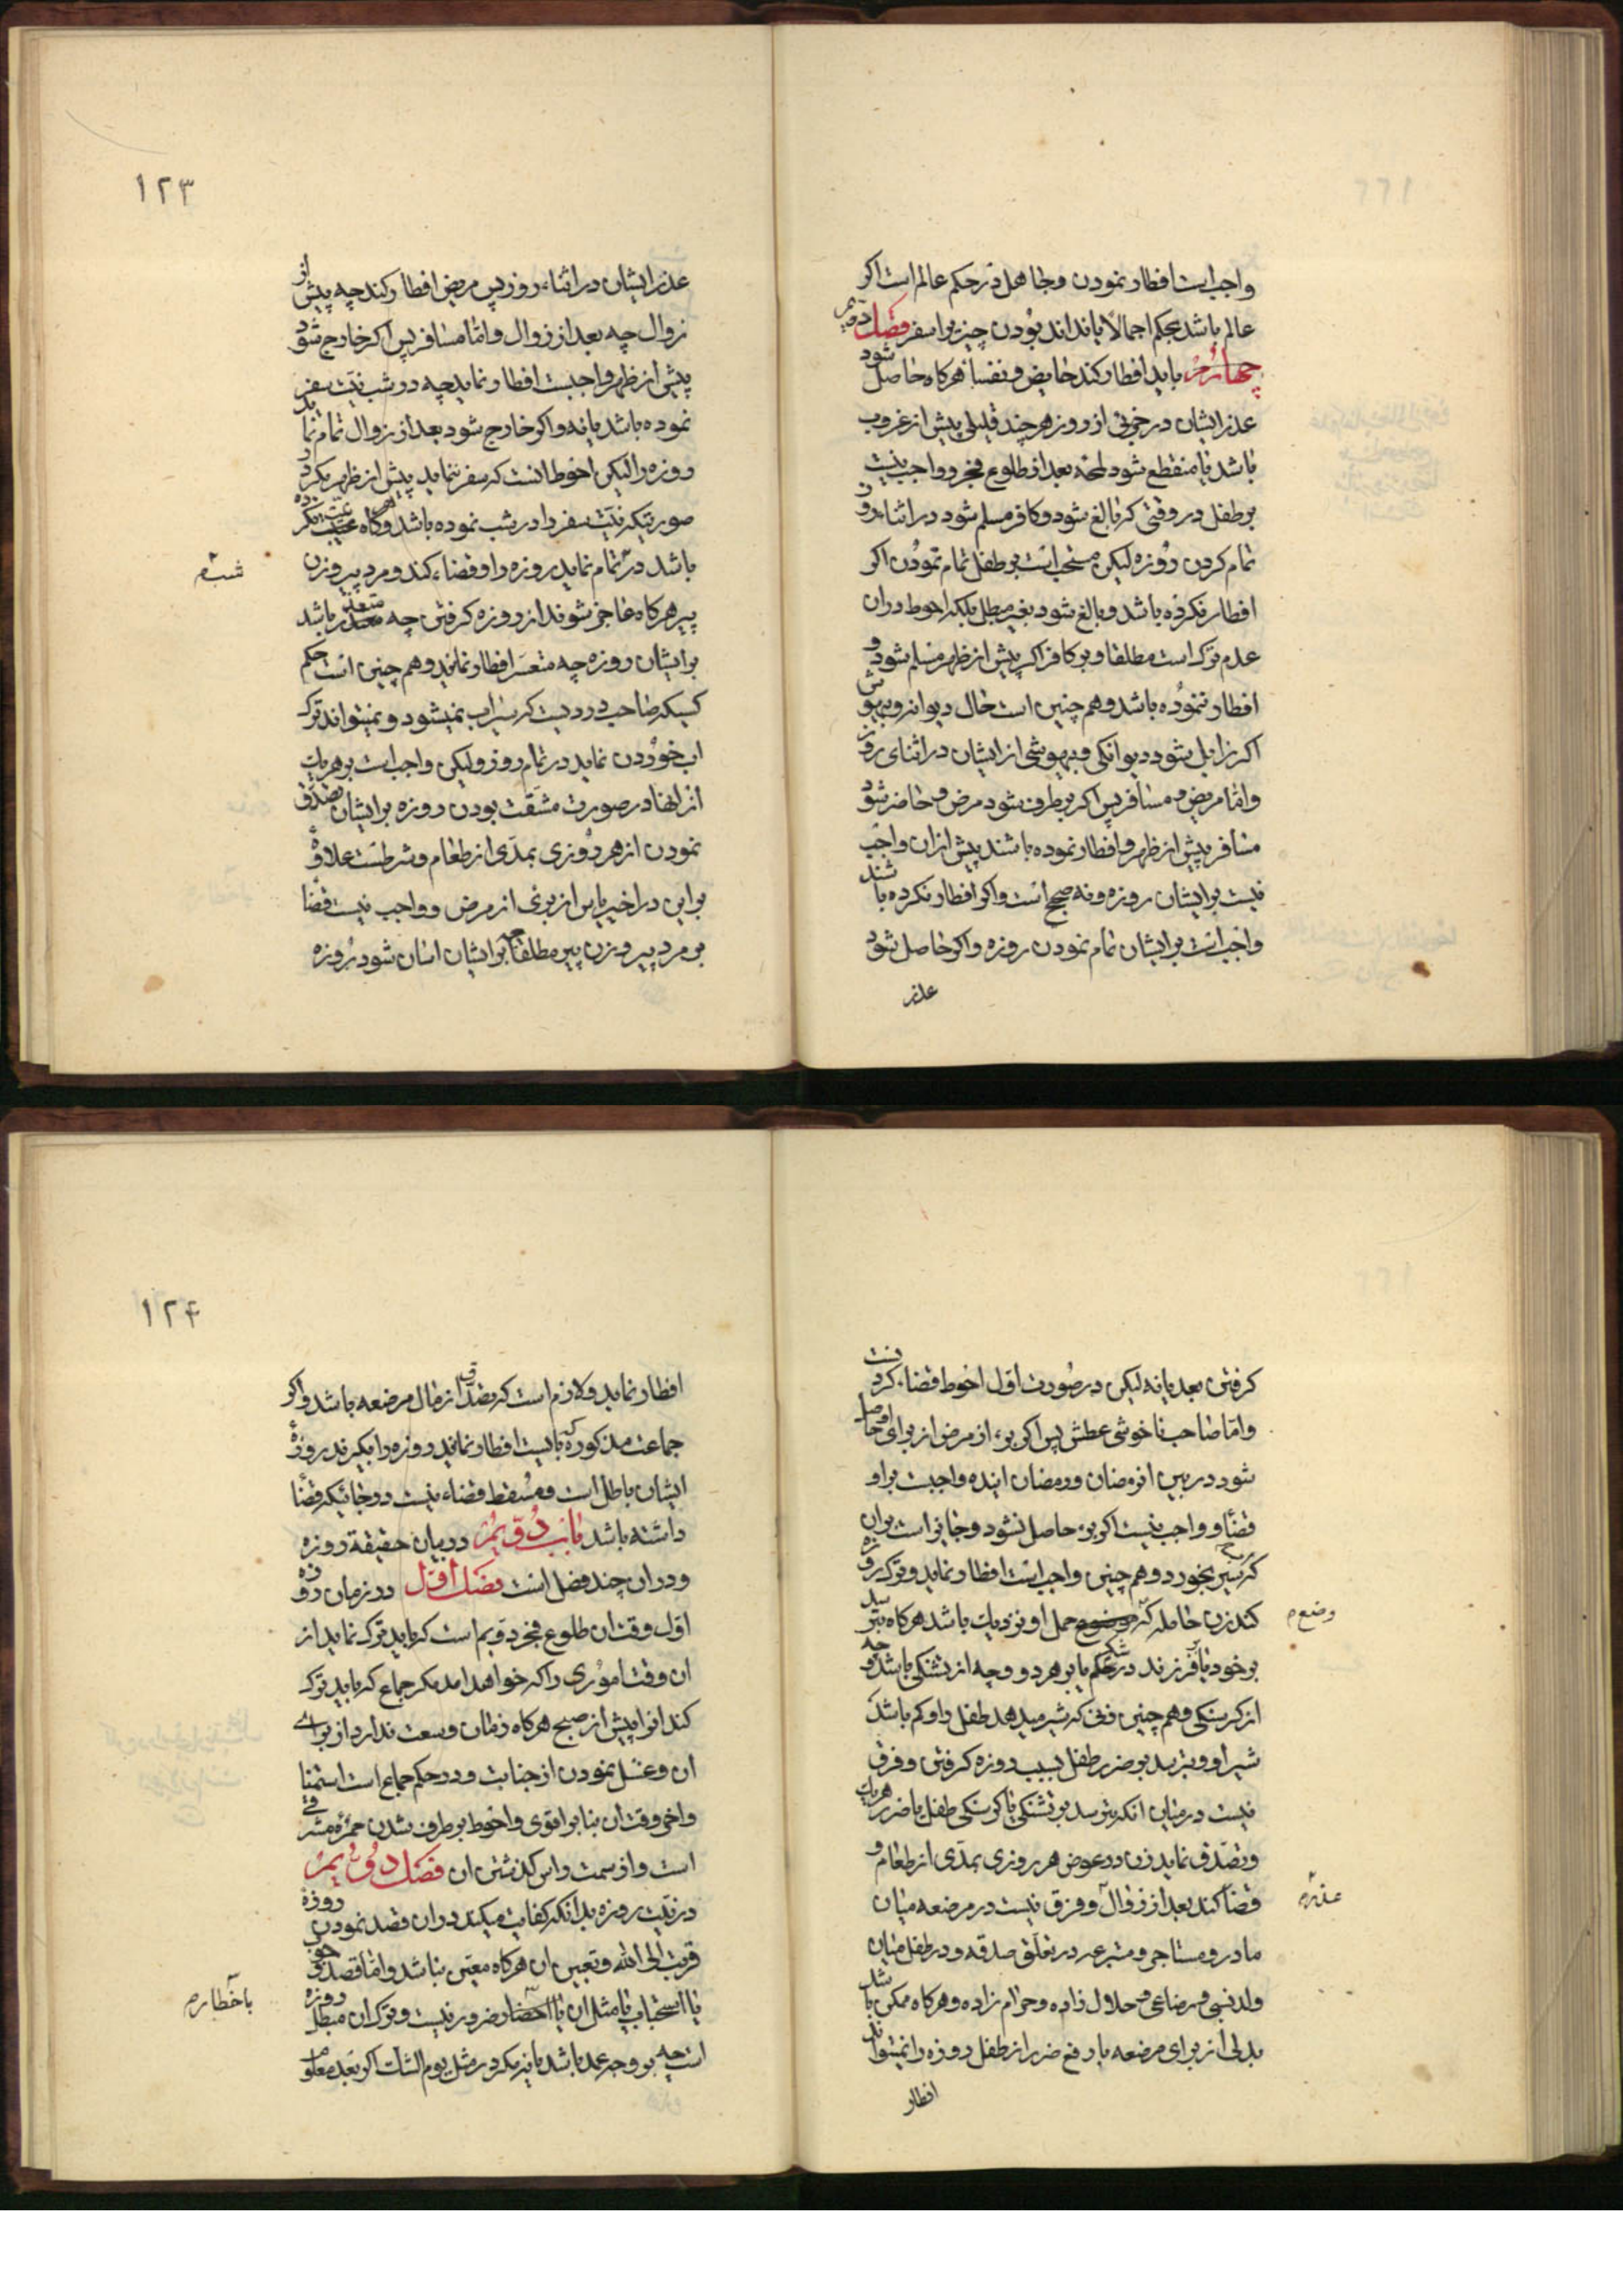 واجب است افطار نمودن و جاهل در حکم عالم است اکر
عالم باشد بحکم اجمالا یا نداند بودن چیز برا سفر فصل
چهارم باید افطار کند حایض و نفسا هرکاه حاصل شود
عذر ایشان در جزئی از روز هر چند قلیلی پیش از غروب
باشد یا منقطع شود لحظه بعد از طلوع فجر و واجب نیست
بر طفل در وقتی که بالغ شود و کافر مسلم شود در اثناء روز
تمام کردن روزه لیکن مستحب است بر طفل تمام نمودن اکر
افطار نکرده باشد و بالغ شود بغیر مبطل بلکه احوط در ان
عدم ترک است مطلقا و بر کافر اکر پیش از ظهر مسلم شود و
افطار ننموده باشد و هم چنین است حال دیوانه و بیهوش
اکر زایل شود دیوانکی و بیهوشی از ایشان در اثنای روز
و اما مریض و مسافر پس اکر بر طرف شود مرض و حاضر شود
مسافر پیش از ظهر و افطار نموده باشند پیش از ان واجب
نیست بر ایشان روزه و نه صحیح است و اکر افطار نکرده باشند
واجب است بر ایشان تمام نمودن روزه و اکر حاصل شود
عذر
۱۲۳
عذر ایشان در اثناء روز پس مریض افطار کند چه پیش از
زوال چه بعد از زوال و اما مسافر پس اکر خارج شود
پیش از ظهر واجبست افطار نماید چه در شب نیت سفر
نموده باشد یا نه و اکر خارج شود بعد از زوال تمام نماید
روزه را لیکن احوط انست که سفر ننماید پیش از ظهر مکر در
صورتیکه نیت سفر را در شب نموده باشد و هرکاه نیت نکرده
باشد در شب تمام نماید روزه را و قضاء کند و مرد پیر و زن
پیر هرکاه عاجز شوند از روزه کرفتن چه متعذر باشد
بر ایشان روزه چه متعسر افطار نمایند و هم چنین است حکم
کسیکه صاحب دردیست که سیراب نمیشود و نمیتواند ترک
اب خوردن نماید در تمام روز و لیکن واجب است بر هر یک
از انها در صورت مشقت بودن روزه بر ایشان تصدق
نمودن از هر روزی بمدی از طعام و شرطست علاوه
بر این در اخیر یاس از برئ از مرض و واجب نیست قضا
بر مرد پیر و زن پیر مطلقا چه بر ایشان اسان شود روزه
کرفتن بعد یا نه لیکن در صورت اول احوط قضاء کردنست
و اما صاحب ناخوشی عطش پس اکر برء از مرض از برای او حاصل
شود در بین ان رمضان و رمضان اینده واجبست بر او
قضا و واجب نیست اکر برء حاصل نشود و جایز است بر ان
که سیر بخورد و هم چنین واجب است افطار نماید و ترک روزه
کند زن حامله که وضع حمل او نزدیک باشد هرکاه بترسد
بر خود یا فرزند در شکم یا بر هر دو چه از تشنکی باشد و چه
از کرسنکی و هم چنین زنی که شیر میدهد طفل را و کم باشد
شیر او و بترسد بر ضرر طفل بسبب روزه کرفتن و فرق
نیست در میان انکه بترسد بر تشنکی یا کرسنکی طفل یا ضرر هر یک
و تصدق نماید زن در عوض هر روزی بمدی از طعام و
قضا کند بعد از زوال عذر و فرق نیست در مرضعه میان
مادر و مستاجر و متبرعه در تعلق صدقه و در طفل میان
ولد نسبی و رضاعی و حلال زاده و حرام زاده و هرکاه ممکن باشد
بدلی از برای مرضعه یا رفع ضرر از طفل روزه را نمیتواند
افطار
۱۲۴
افطار نماید و لازم است که تصدق از مال مرضعه باشد و اکر
جماعت مذکوره که بایست افطار نمایند روزه را بکیرند روزهٔ
ایشان باطل است و مسقط قضاء نیست در جائیکه قضا
داشته باشد باب دویم در بیان حقیقة روزه
و در ان چند فصل است فصل اول در زمان روزه
اول وقت ان طلوع فجر دویم است که باید ترک نماید از
ان وقت اموری را که خواهد امد مکر جماع که باید ترک
کند انرا پیش از صبح هرکاه زمان وسعت ندارد از برای
ان و غسل نمودن از جنابت و در حکم جماع است استمنا
و اخر وقت ان بنابر اقوی و احوط بر طرف شدن حمرهٔ مشرقی
است و از سمت راس کذشتن ان فصل دویم
در نیت روزه بدانکه کفایت میکند در ان قصد نمودن روزه
قربت الی الله و تعیین ان هرکاه معین نباشد و اما قصد وجوب
یا استحباب یا مثل ان یا باخطار ضرور نیست و ترک ان مبطل روزه
است چه بر وجه عمد باشد یا نه مکر در مثل یوم الشک اکر بعد معلوم
شب
وضع
عذر
باخطار